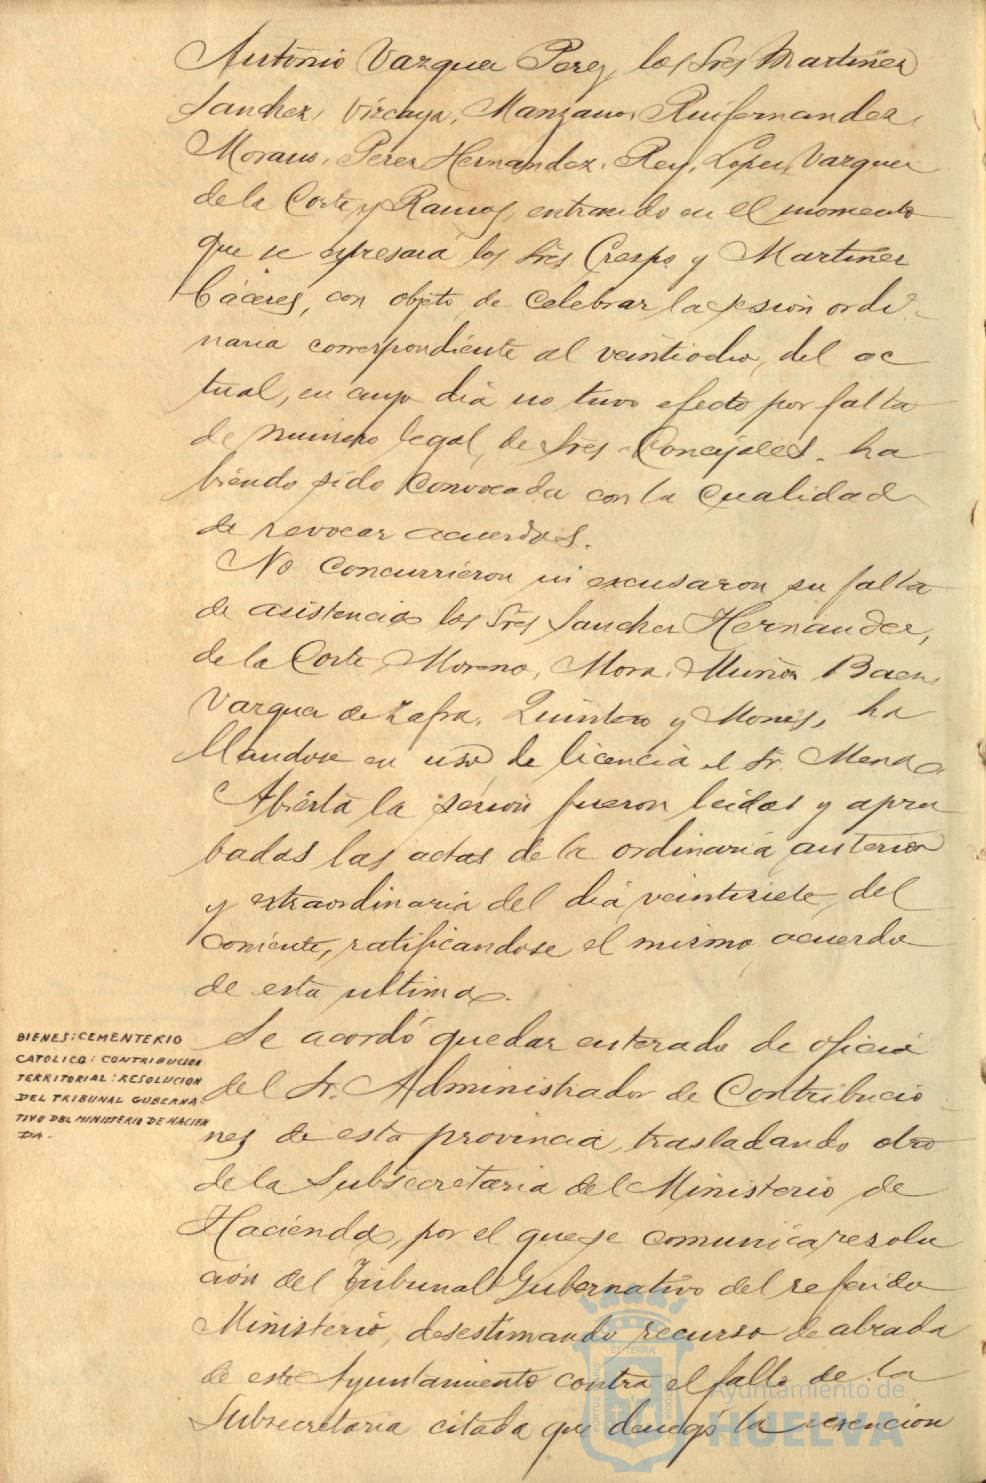 Antonio Vazquez Perez, los Sres Martinez
Sanchez, Vizcaya, Manzano, Ruifernandez,
Moreno, Perez Hernandez, Rey, Lopez, Vazquez
de la Corte y Ramos, entrando en el momento
que se espresará los Sres Crespo y Martinez
Cáceres, con objeto de celebrar la sesion ordi-
naria correspondiente al veintiocho, del ac
tual, en cuyo dia no tuvo efecto por falta
de número legal, de Sres Concejales, ha
biendo sido convocada con la cualidad
de revocar acuerdos.
No concurrieron ni excusaron su falta
de asistencia los Sres Sanchez Hernandez,
de la Corte Moreno, Mora, Muñoz Baen,
Vazquez de Zafra, Quintero y Mones, ha
llandose en uso de licencia el Sr. Mena
Abierta la sesion fueron leidas y apro
badas las actas de la ordinaria anterior
y extraordinaria del dia veintisiete, del
corriente, ratificandose el mismo acuerdo
de esta ultima.
BIENES: CEMENTERIO
CATOLICO: CONTRIBUCION
TERRITORIAL: RESOLUCION
DEL TRIBUNAL GUBERNA
TIVO DEL MINISTERIO DE HACIEN
DA.
Se acordó quedar enterado de oficio
del Sr. Administrador de Contribucio
nes de esta provincia, trasladando otro
de la Subsecretaria del Ministerio de
Hacienda, por el que se comunica resolu
ción del Tribunal Gubernativo del referido
Ministerio, desestimando recurso de alzada
de este Ayuntamiento contra el fallo de la
Subsecretaria citada que denegó la exencion
Ayuntamiento de
HUELVA